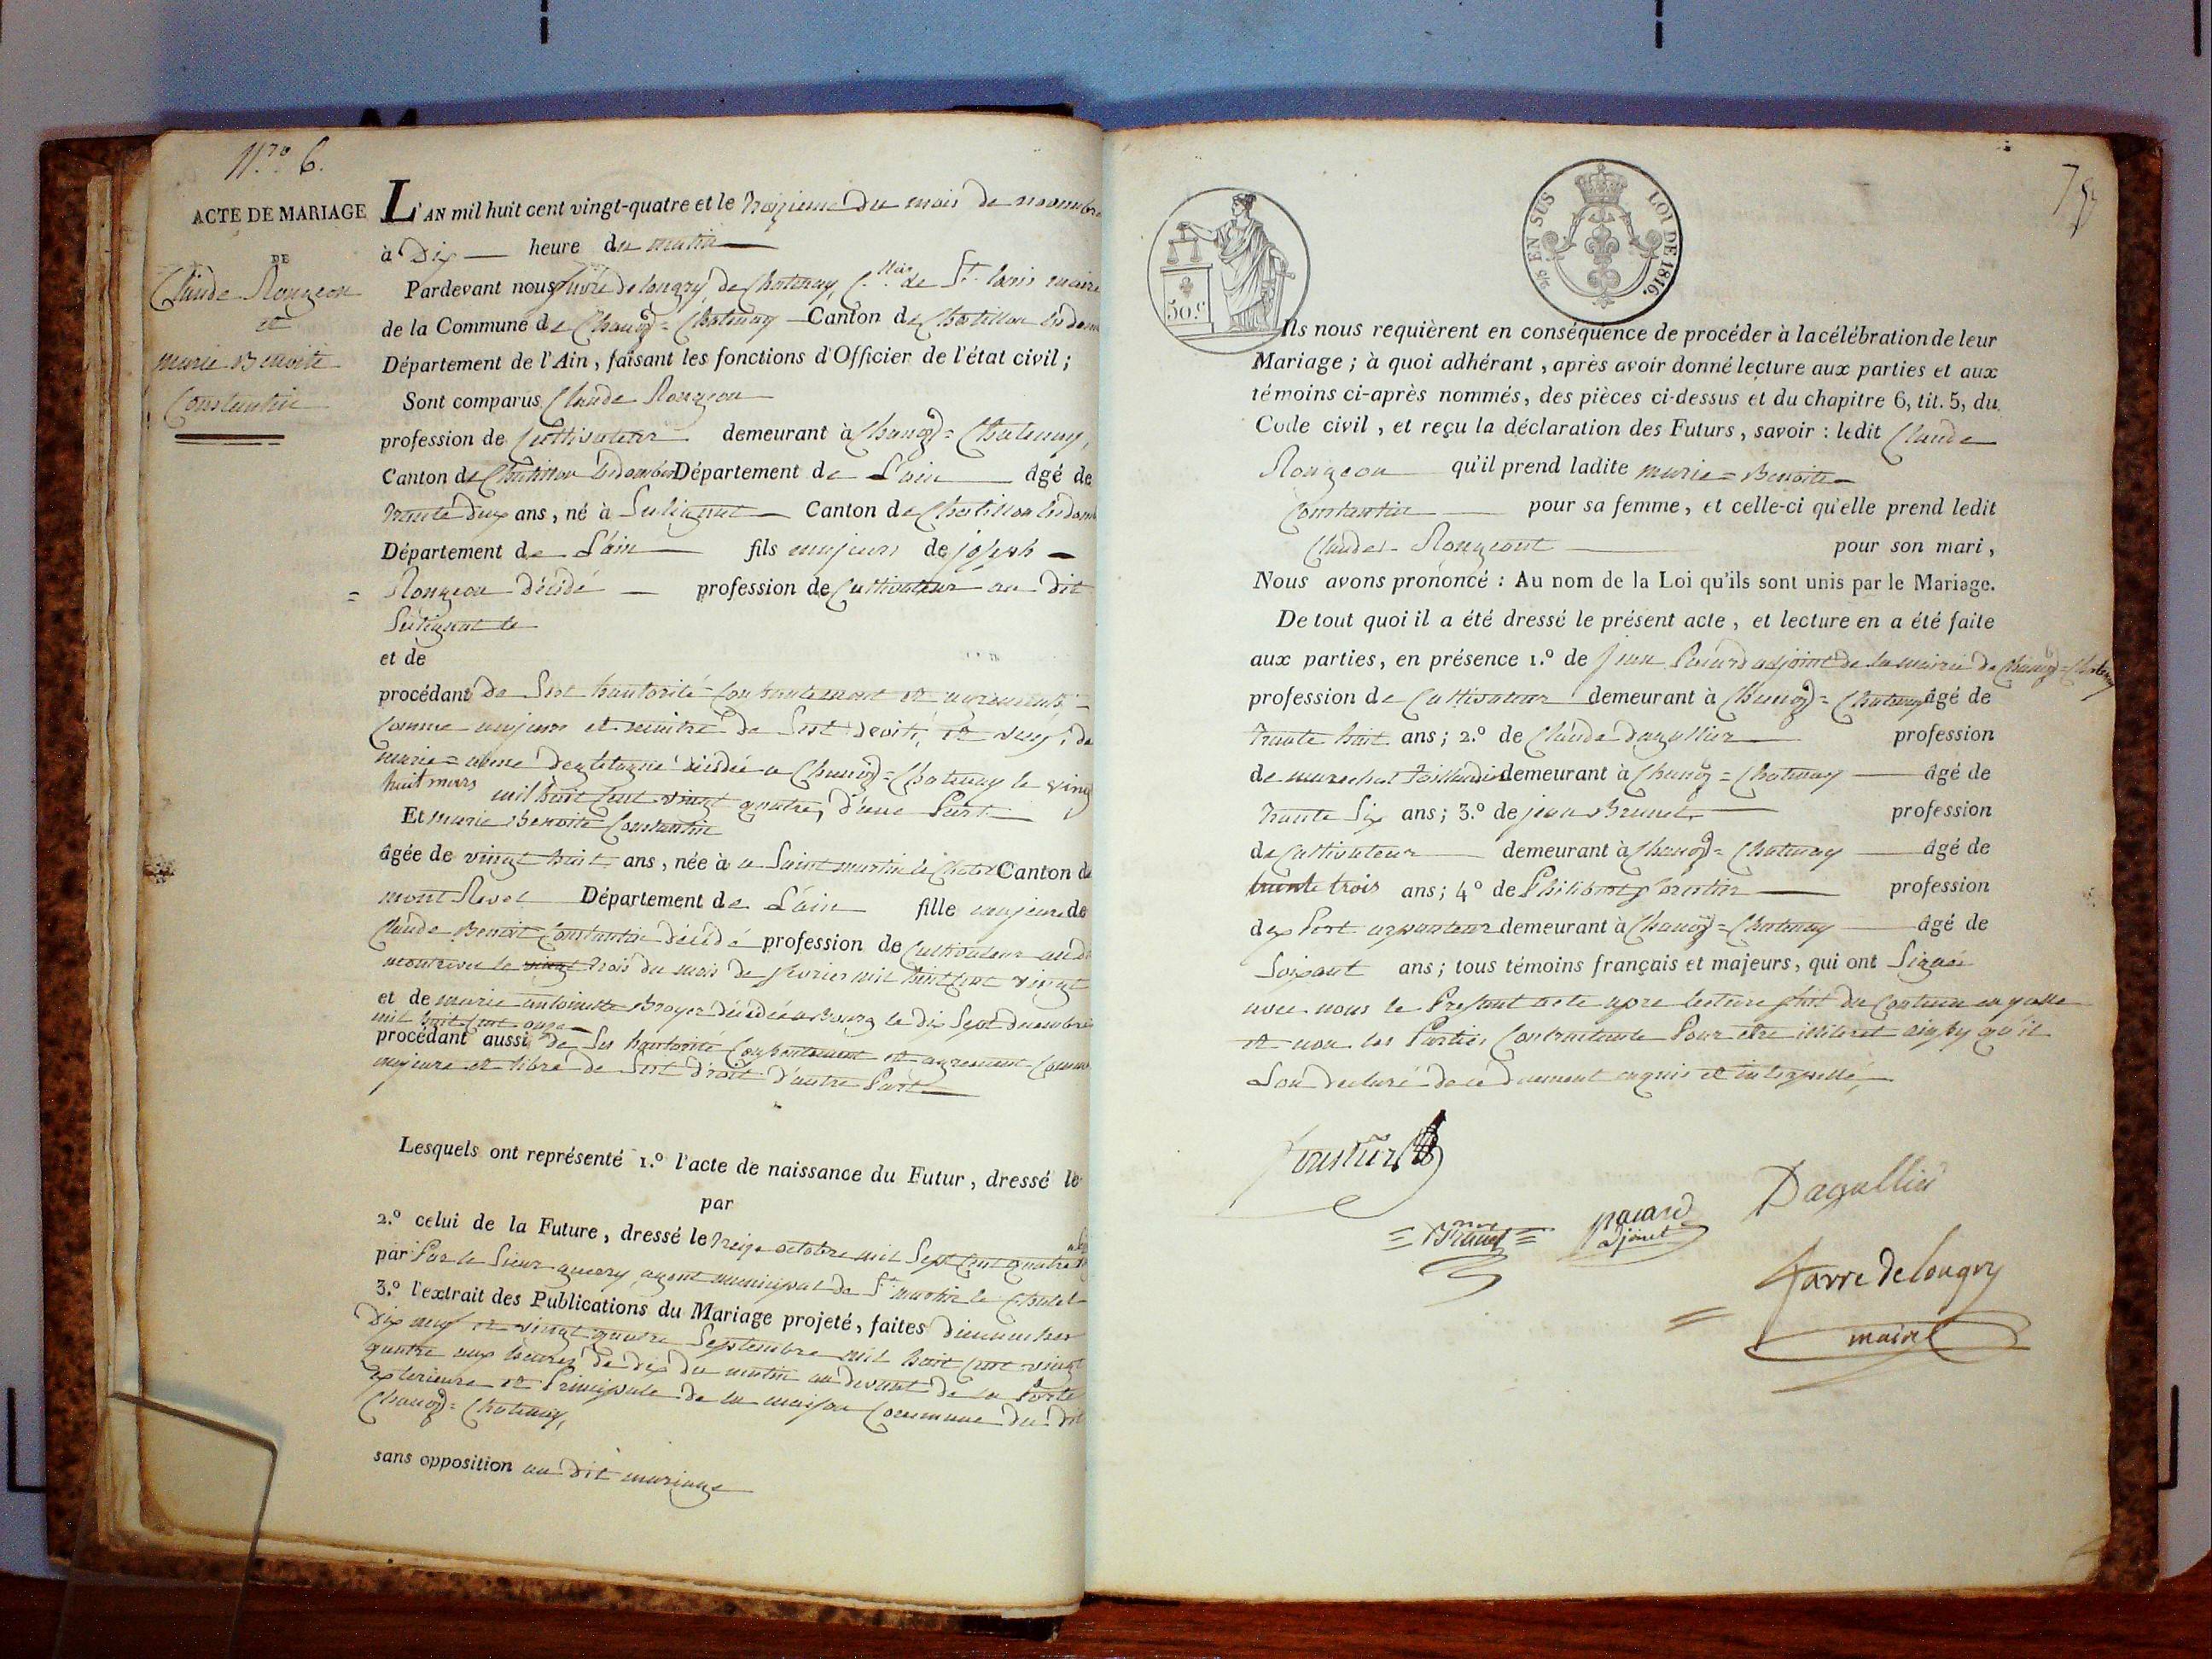 N.ro 6.
ACTE DE MARIAGE
DE
Claude Rongeon
et
marie Benoite
Constantin
L'AN mil huit cent vingt-quatre et le treizieme du mois de novembre
à Dix heure du matin
Pardevant nous favre de longry, de Chatenay, C. de St. louis maire
de la Commune de Chanoz = Chatenay Canton de Chatillon
Département de l'Ain, faisant les fonctions d'Officier de l'état civil;
Sont comparus Claude Rongeon
profession de Cultivateur demeurant à Chanoz = Chatenay,
Canton de Chatillon Département de L'ain âgé de
trante deux ans, né à Sulignat Canton de Chatillon
Département de L'ain fils majeur de joseph
= Rongeon décédé profession de Cultivateur au dit
Sulignat le
et de
procédant de Sest hautorité Consentement et agrement
Comme majeur et maitre de Sest droits, et veuf, de
marie décédée a Chanoz = Chatenay le vingt
huit mars mil huit Cent vingt quatre, d'une Part
Et marie Benoite Constantin
âgée de vingt huit ans, née à a Saint martin le Chatel Canton de
mont Revel Département de L'ain fille majeure de
Claude Benoit Constantin décédé profession de Cultivateur au dit
montrevel le vingt trois du mois de fevrier mil huit Cent vingt
et de marie antoinette Broyer décédée a Bourg le dix Sept
mil huit Cent onze
procédant aussi de Ses hautorité Consentement et agrement Comme
majeure et libre de Sest droit d'autre Part
Lesquels ont représenté 1.º l'acte de naissance du Futur, dressé le
par
2.º celui de la Future, dressé le treize octobre mil Sept Cent quatre
par Par le Sieur guerry, agent municipal de St. martin le Chatel
3.º l'extrait des Publications du Mariage projeté, faites dimanches
Dix neuf et vingt Septembre mil huit Cent vingt
quatre aux heures de dix du matin au devant de la Porte
exterieure et Principale de la maison Commune du dit
Chanoz = Chatenay,
sans opposition au dit mariage
50.c
EN SUS
LOI DE 1816.
Ils nous requièrent en conséquence de procéder à la célébration de leur
Mariage; à quoi adhérant, après avoir donné lecture aux parties et aux
témoins ci-après nommés, des pièces ci-dessus et du chapitre 6, tit. 5, du
Code civil, et reçu la déclaration des Futurs, savoir: ledit Claude
Rongeon qu'il prend ladite marie = Benoite
Constantin pour sa femme, et celle-ci qu'elle prend ledit
Claude Rongeont pour son mari,
Nous avons prononcé: Au nom de la Loi qu'ils sont unis par le Mariage.
De tout quoi il a été dressé le présent acte, et lecture en a été faite
aux parties, en présence 1.º de jean Pacard adjoint de la mairie de Chanoz = Chatenay
profession de Cultivateur demeurant à Chanoz = Chatenay âgé de
trante huit ans; 2.º de Claude Dagallier profession
de marechal taillandier demeurant à Chanoz = Chatenay âgé de
trante Six ans; 3.º de jean Brunet profession
de Cultivateur demeurant à Chanoz = Chatenay âgé de
trente trois ans; 4º de Philibert profession
d'ex Pert arpanteur demeurant à Chanoz = Chatenay âgé de
Soixant ans; tous témoins français et majeurs, qui ont Signé
avec nous le Present acte apre lecture fait du Contenu
et non les Parties Contractante Pour etre illiteret ainsy qu'il
L'on declaré de ce duement enquis et interpellé,
= Brunet =
pacard
adjoint
Dagallier
favre de longry
maire